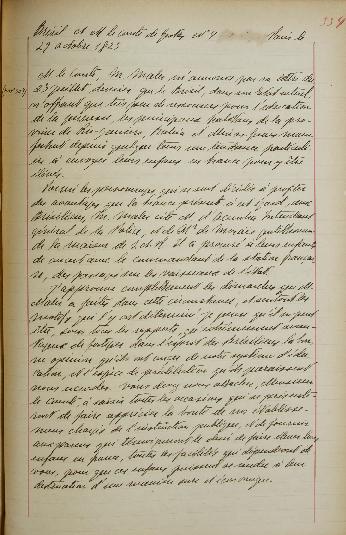 334
Brésil et M. le comte de Gestas Nº 4 Paris le
29 octobre 1823
M. le Comte, M. Maler m'annonce par sa lettre du
23 juillet dernier que le Brésil, dans son état actuel,
n'offrant que très peu de ressources pour l'éducation
de la jeunesse, les principaux habitans de la pro-
vince de Rio-Janeiro, Indiens et désirs pour
depuis quelque tems une tendance particuliè-
re à envoyer leurs enfans en France pour y être
élevés.
Parmi les personnages qui se sont décidés à profiter
des avantages que la France présente à cet égard aux
Brésiliens, M. Maler cite M. d' l'Intendant
général de la Police, et M. de
de la maison de S. M. Il a procuré à leurs enfans
de concert avec le commandant de la station françai-
se, des passages sur les vaisseaux de l'État.
J'approuve complètement les démarches que M.
Maler a faites dans cette circonstance, et surtout les
motifs qui l'y ont déterminé. Je pense qu'il ne peut
être, sous tous les rapports, que
de fortifier dans l'esprit des Brésiliens la bon-
ne opinion qu'ils ont conçue de notre système d'édu-
cation, et l'espèce de prédilection qu'ils paraissent
nous accorder. Vous devez vous attacher, Monsieur
le Comte, à saisir toutes les occasions qui se présente-
ront de faire apprécier la bonté de nos établisse-
mens chargés de l'instruction publique, et de fournir
aux parens qui témoigneront le désir de faire élever leurs
enfans en France, toutes les facilités qui dépendront de
vous, pour que ces enfans puissent se rendre à leur
destination d'une manière sure et économique.